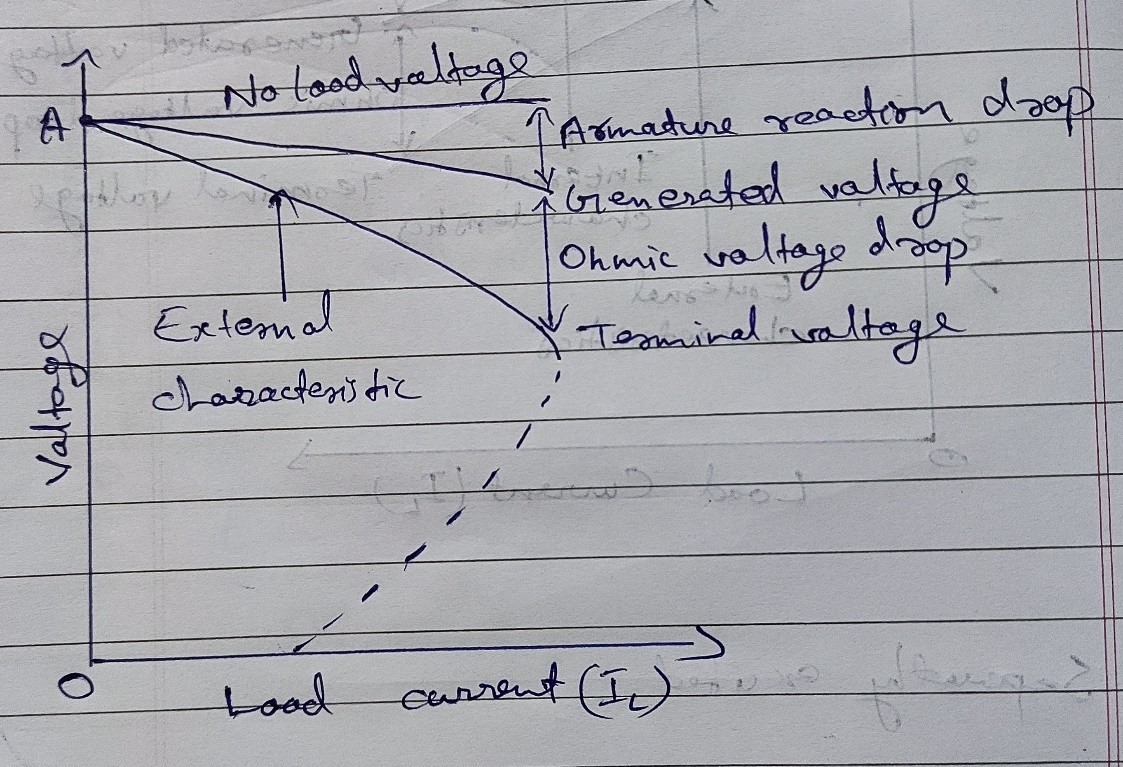 No load voltage
A
Armature reaction drop
Generated voltage
Ohmic voltage drop
Terminal voltage
External
characteristic
Voltage
O
Load current (IL)